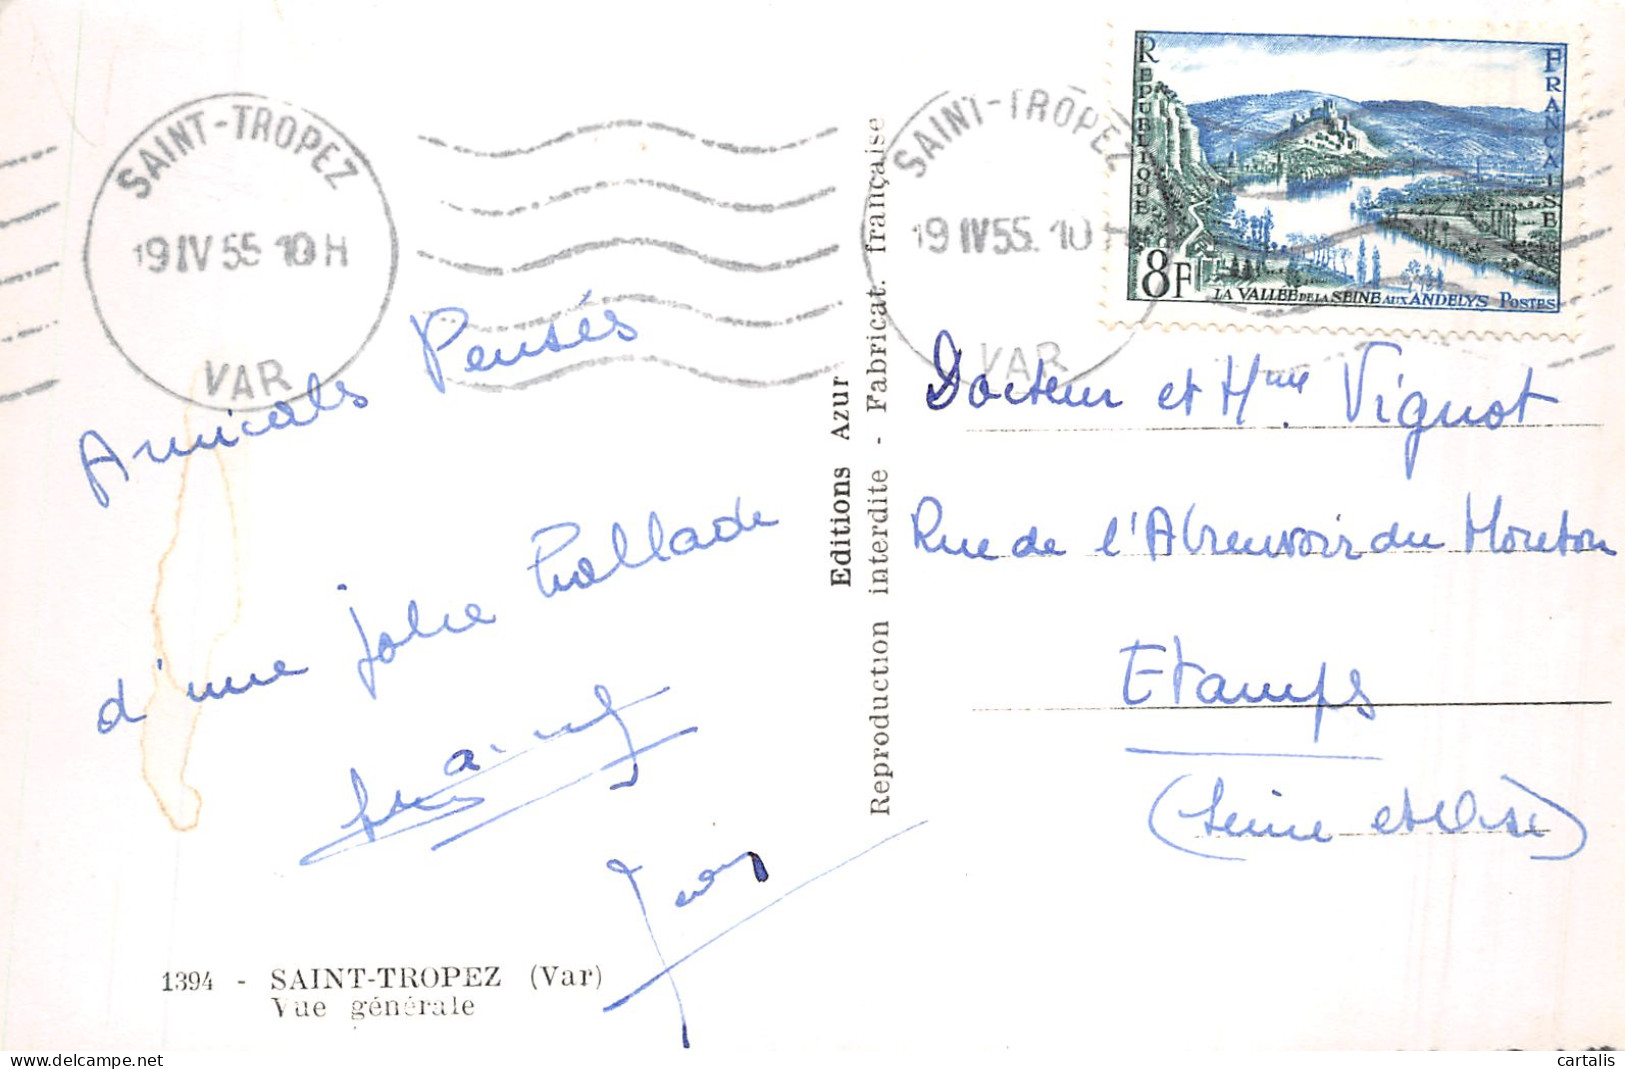 SAINT-TROPEZ
19 IV 55 10 H
VAR
SAINT-TROPEZ
19 IV 55. 10 H
VAR
REPUBLIQUE FRANÇAISE
8F
LA VALLÉE DE LA SEINE AUX ANDELYS POSTES
Amicals Pensés
d'une jolie Ballade
Editions Azur
Reproduction interdite - Fabricat. française
Docteur et Mme. Vignot
Rue de l'Abreuvoir du Mouton
Etamps
(Seine et Oise)
1394 - SAINT-TROPEZ (Var)
Vue générale
cartalis